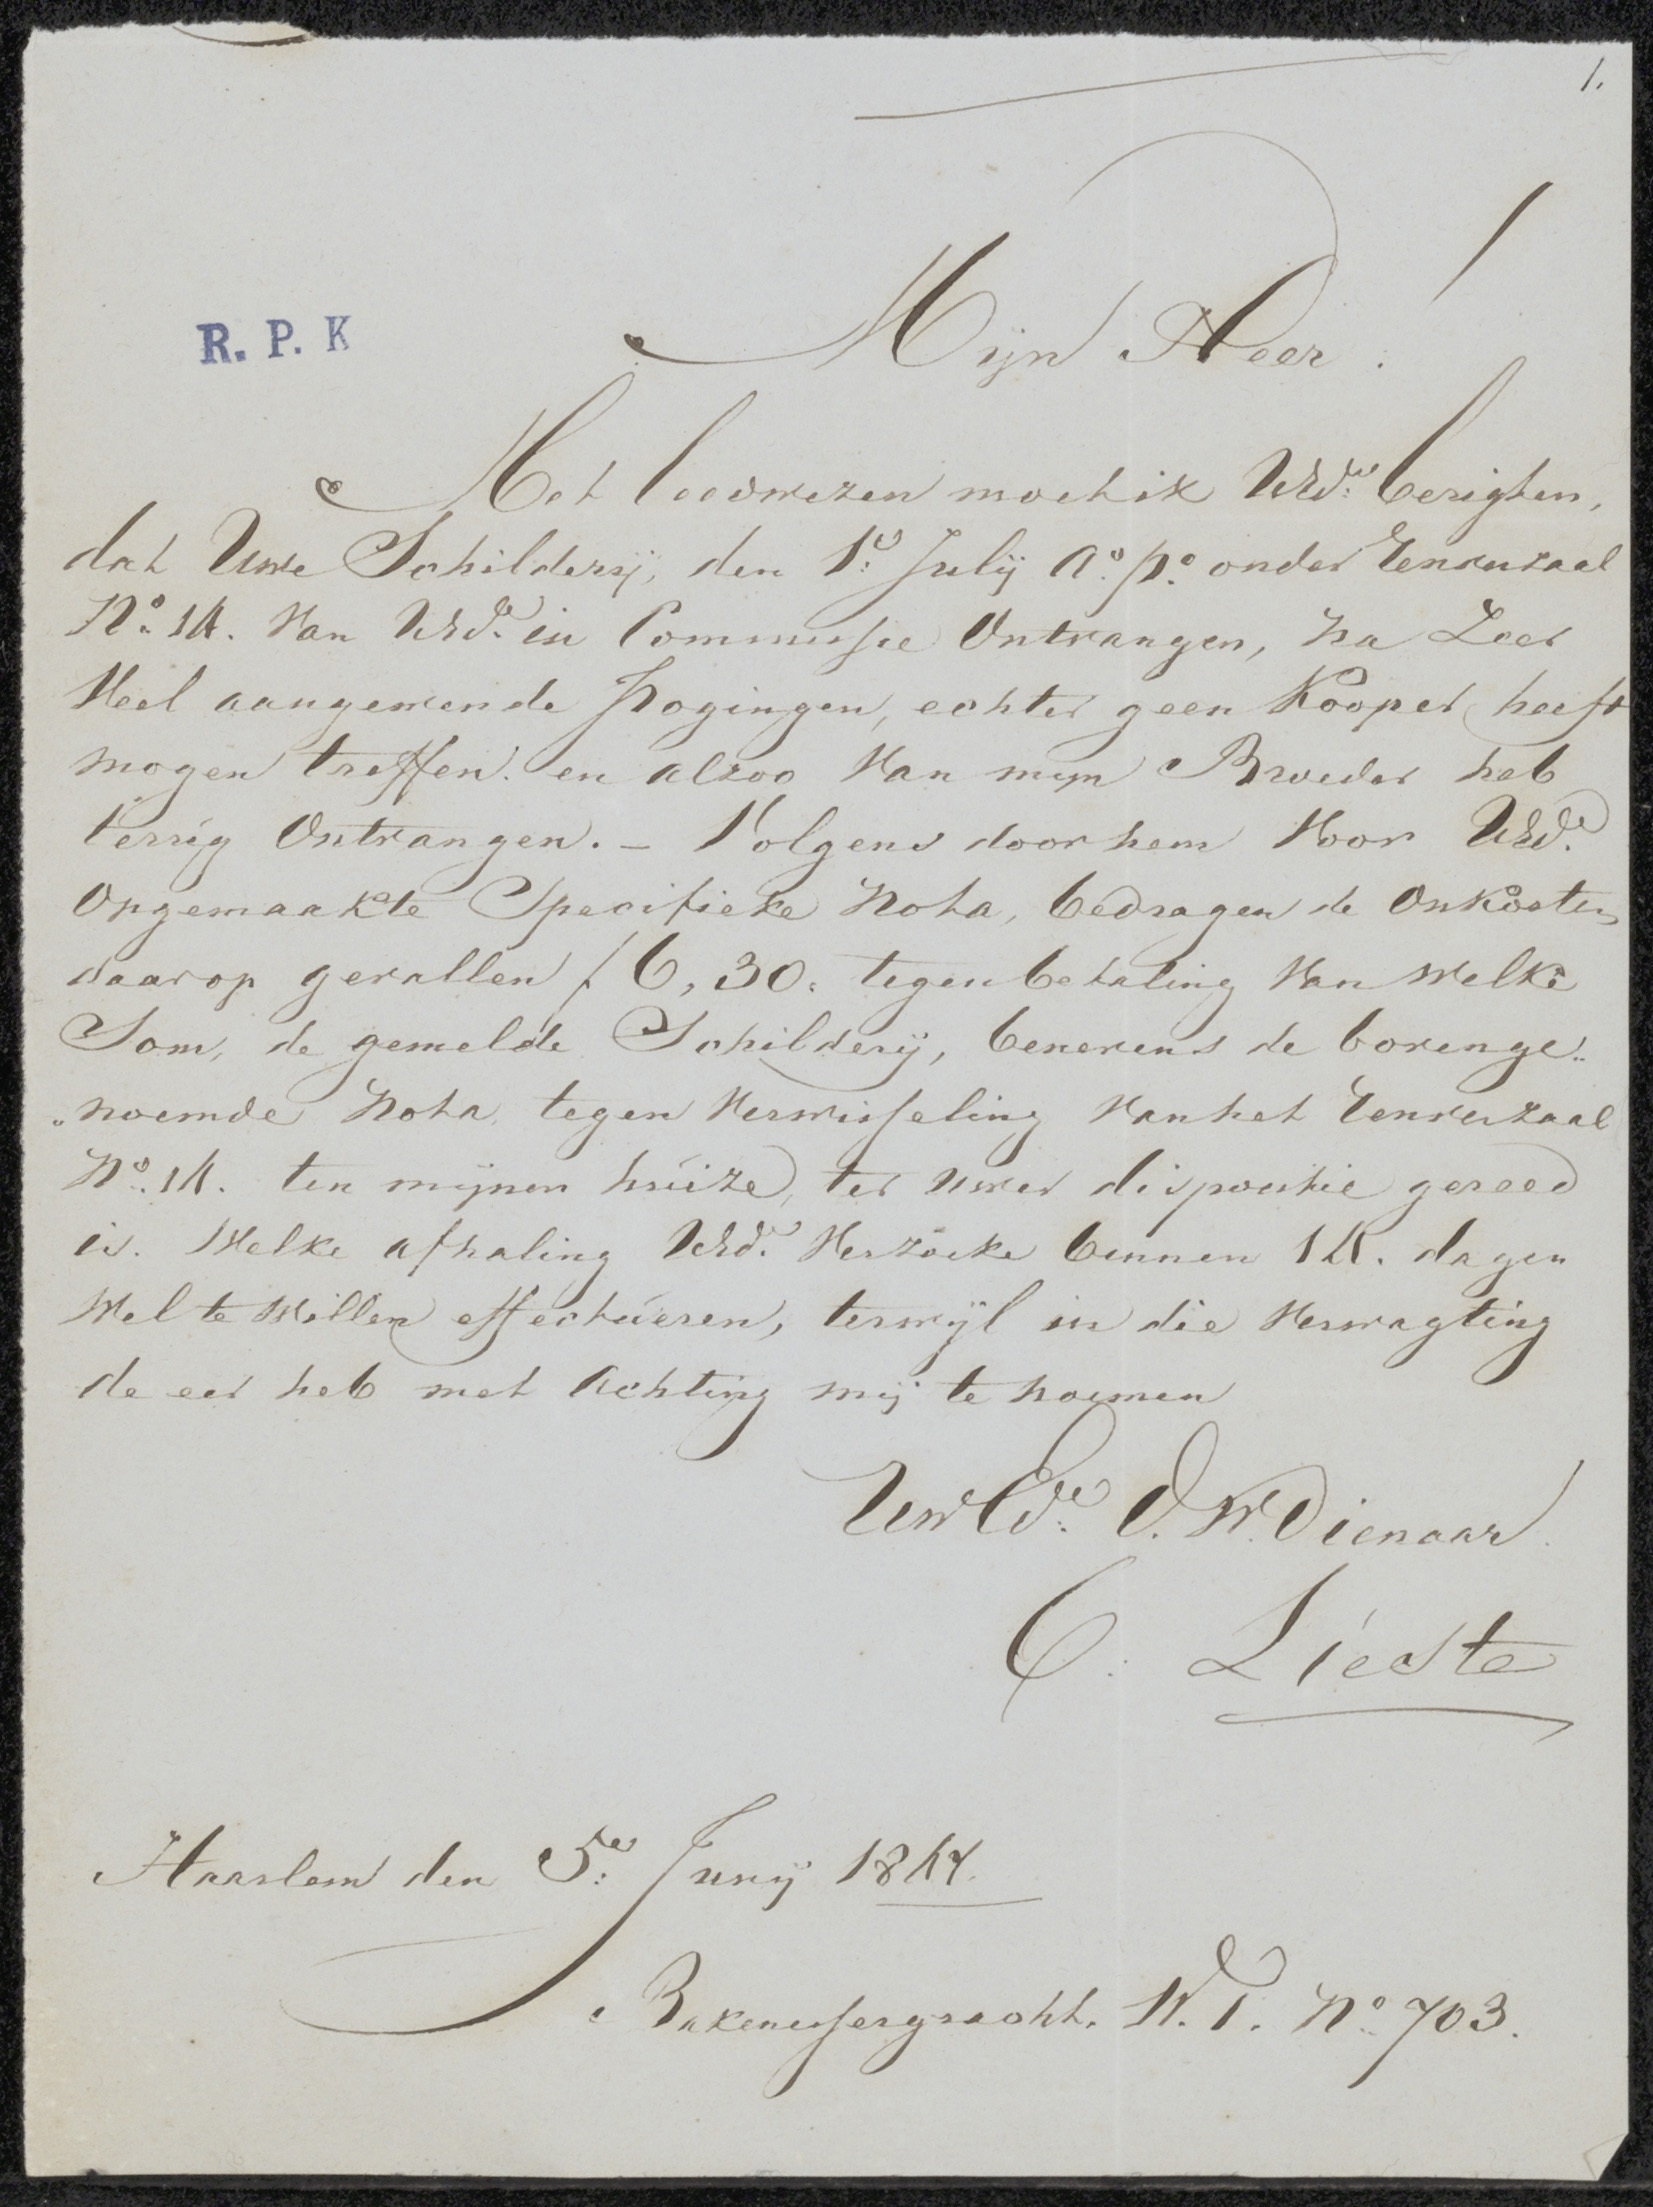 1.
R. P. K
Mijn Heer!
Met leedwezen moet ik UEd.e berigten,
dat Uwe Schilderij, den 1.e Julij A.o p.o onder Eenverzaal
N.o 14. van UEd.e in Commissie Ontvangen, na Zeer
Veel aangewende pogingen, echter geen Kooper heeft
mogen treffen. en alzoo Van mijn Broeder heb
terrúg Ontvangen. – Volgens door hem Voor UEd.e
Opgemaakte Specifieke Nota, bedragen de Onkosten
daarop gevallen f 6,30. tegen betaling Van Welke
Som, de gemelde Schilderij, benevens de bovenge„
„noemde Nota, tegen Verwisseling Van het Eenverzaal
N.o 14. ten mijnen húize, ter uwer dispositie gereed
is. Welke afhaling UEd.e Verzoeke binnen 14. dagen
Wel te Willen effectúeren, terwijl in die Verwagting
de eer heb met Achting mij te noemen
UwEd.e D.W. Dienaar.
C. Lieste
Haarlem den 5.e Junij 1847.
Bakenessergracht. W. 1. N.o 703.